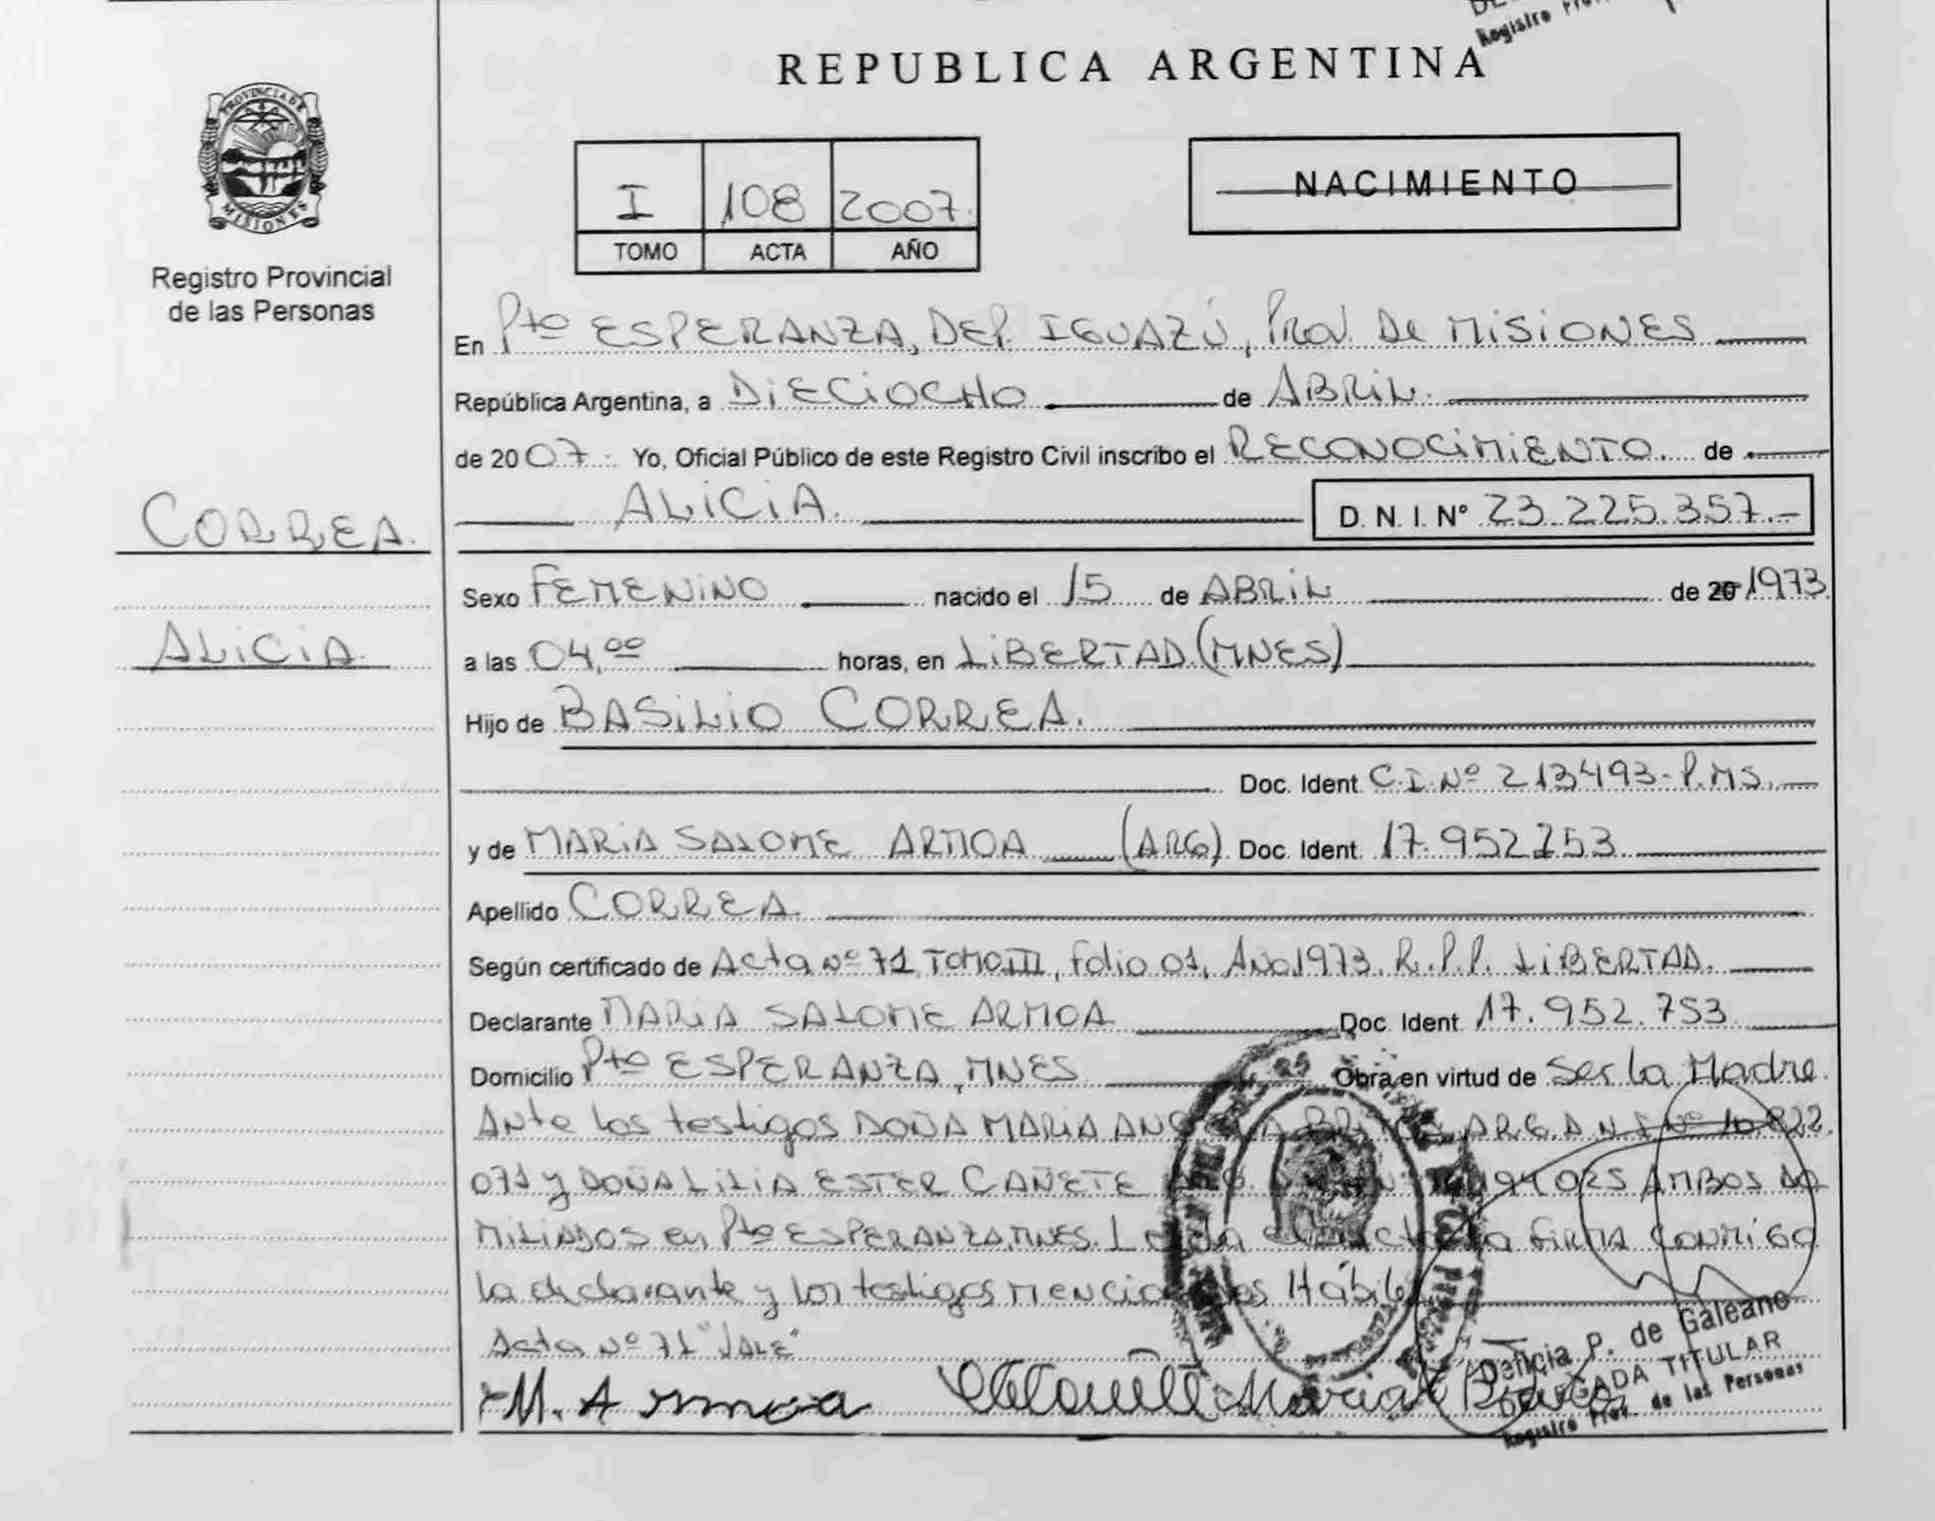 Registro Pro
REPUBLICA ARGENTINA
PROVINCIA DE
MISIONES
Registro Provincial
de las Personas
I 108 2007.
TOMO ACTA AÑO
NACIMIENTO
En Pto ESPERANZA, DEP. IGUAZÚ, Prov. De MISIONES
República Argentina, a DIECIOCHO de ABRIL.
de 2007. Yo, Oficial Público de este Registro Civil inscribo el RECONOCIMIENTO. de
ALICIA. D. N. I. Nº 23.225.357.-
CORREA.
Sexo FEMENINO nacido el 15 de ABRIL de 20 1973
ALICIA.
a las 04,00 horas, en LIBERTAD (MNES)
Hijo de BASILIO CORREA.
Doc. Ident. C.I. Nº 213493-P.MS.
y de MARIA SALOME ARMOA (ARG) Doc. Ident. 17.952753
Apellido CORREA
Según certificado de Acta Nº 71 TOMO III, Folio 01, Año 1973. R.P.P. LIBERTAD.
Declarante MARIA SALOME ARMOA Doc. Ident. 17.952.753
Domicilio Pto ESPERANZA, MNES Obra en virtud de Ser la Madre.
Ante los testigos DOÑA MARIA ARG. D.N.I Nº 10.822.
071 y DOÑA LILIA ESTER CAÑETE 025 AMBOS DO
MILIADOS en Pto ESPERANZA, MNES. Leida el acta la firma CONMIGO
la declarante y los testigos mencionados Hábiles
Acta Nº 71 "VALE"
M. Armoa Maria
Delicia P. de Galeano
DELEGADA TITULAR
Registro Prov. de las Personas